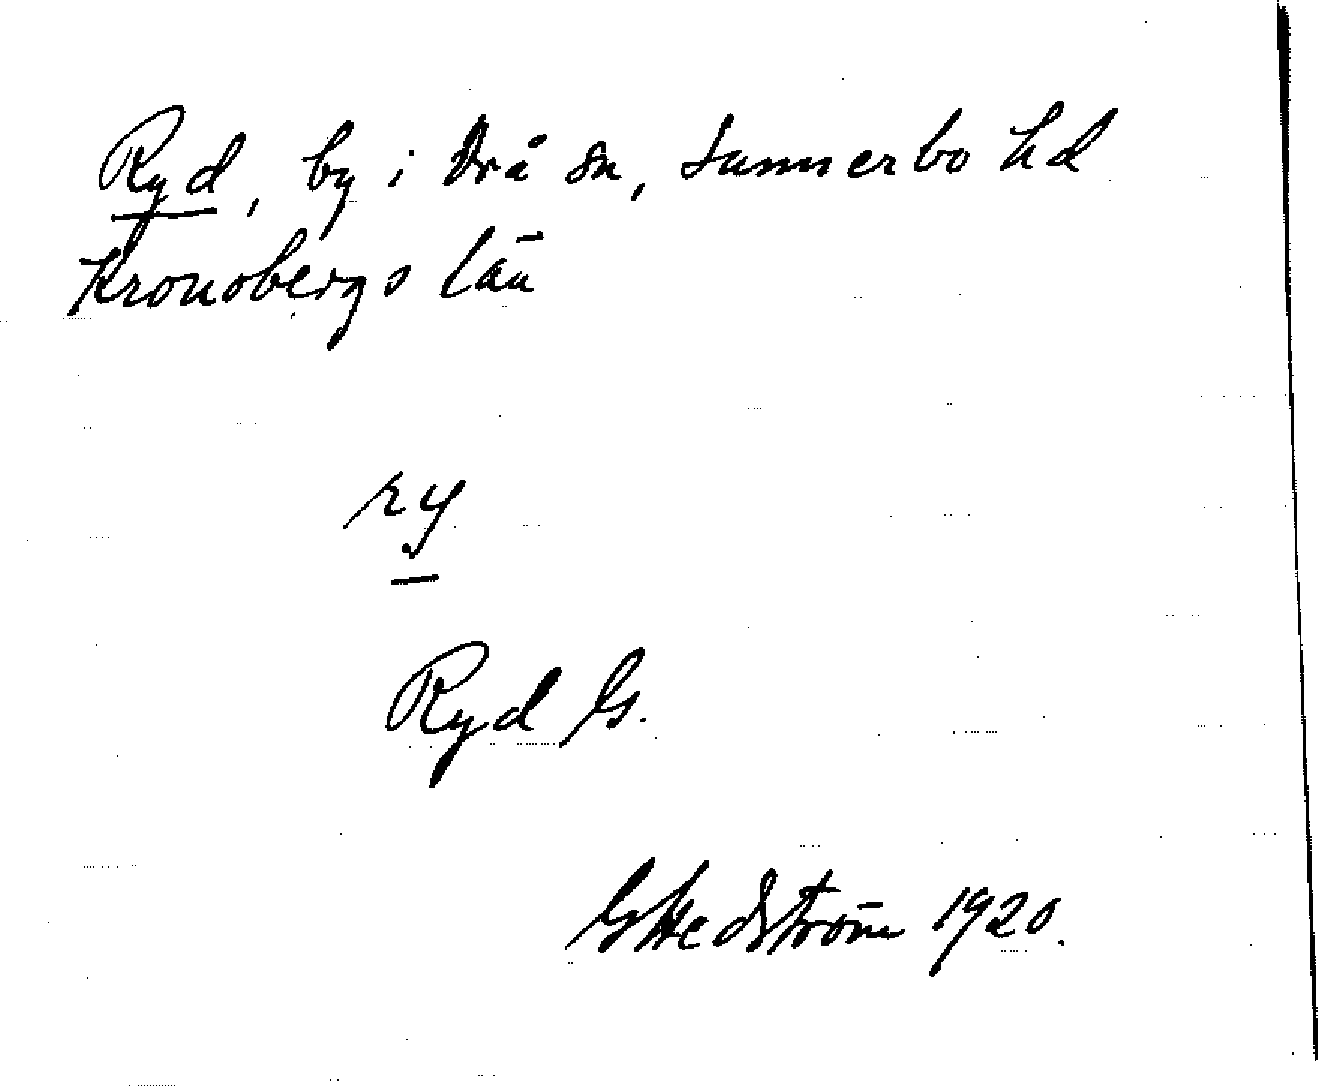 Ryd, by i Vrå sn, Sunnerbo hd
Kronobergs län
ry
Ryd G.
G Hedström 1920.